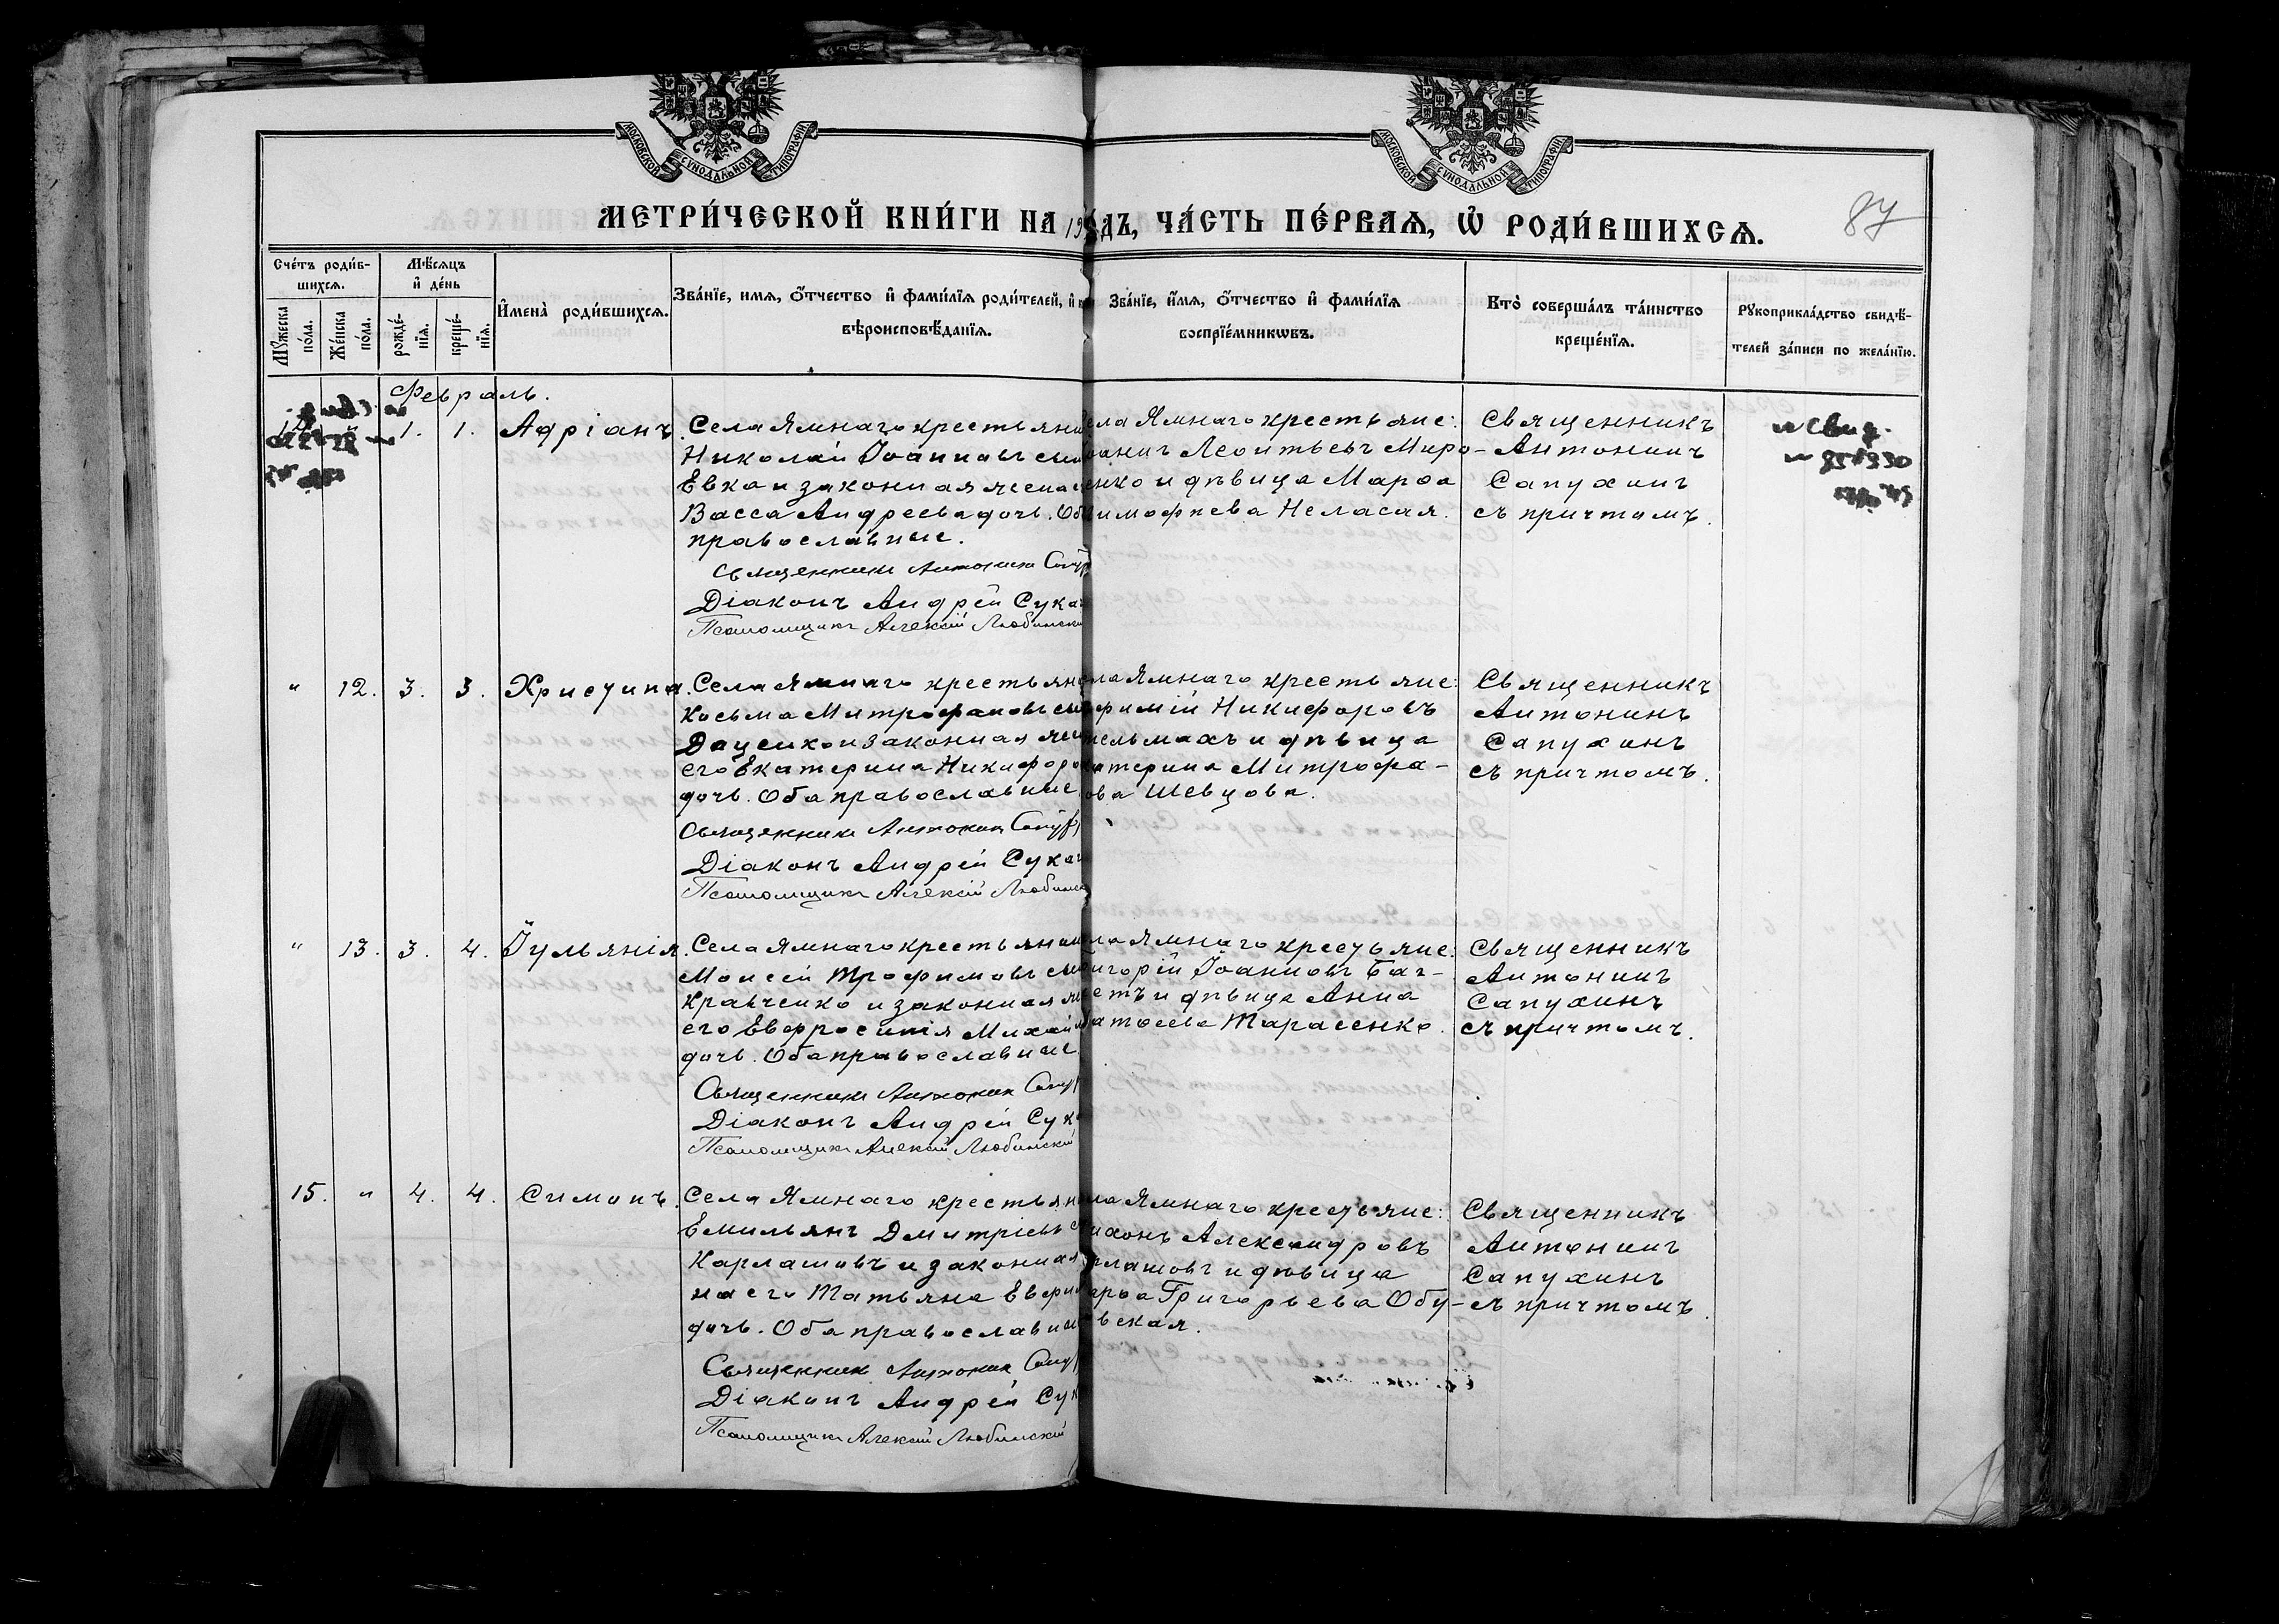 МОСКОВСКОЙ СѴНОДАЛЬНОЙ ТИПОГРАФІИ
МОСКОВСКОЙ СѴНОДАЛЬНОЙ ТИПОГРАФІИ
МЕТРИ́ЧЕСКОЙ КНИ́ГИ НА 19 ДЪ, ЧА́СТЬ ПЕ́РВАѦ, Ѡ РОДИ́ВШИХСѦ.
87
Сче́тъ роди́в-
шихсѧ.
Мꙋ́жеска
по́ла.
Же́нска
по́ла.
Мѣ́сѧцъ
и҆ де́нь
рожде́-
нїѧ.
креще́-
нїѧ.
И҆мена̀ роди́вшихсѧ.
Зва́нїе, имѧ, ѻ҆́тчество и҆ фами́лїѧ роди́телей, и҆
вѣроисповѣ́данїѧ.
Зва́нїе, и҆́мѧ, ѻ҆́тчество и҆ фами́лїѧ
воспрїе́мникѡвъ.
Кто̀ соверша́лъ та́инство
креще́нїѧ.
Рꙋкоприкла́дство свидѣ́-
телей за́писи по жела́нїю.
Февраль.
1. 1. Адріанъ.
Села Ямнаго крестьяни
Николай Іоанновъ
Евко и законная жена
Васса Андреева дочь. Об
православные.
Священникъ Антонин
Діаконъ Андрей Сука
Псаломщикъ Алексій Любински
ела Ямнаго крестьяне:
оаннъ Леонтьевъ Миро-
енко и дѣвица Марѳа
имофеева Неласая.
Священникъ
Антонинъ
Сапухинъ
съ причтомъ.
и свид.
" 12. 3. 3. Христина.
Села Ямнаго крестьян
Косьма Митрофановъ
Даценко и законная
его Екатерина Никифоро
дочь. Оба православные
Священникъ Антонин
Діаконъ Андрей Сука
Псаломщикъ Алексій Любинс
ла Ямнаго крестьяне:
фимій Никифоровъ
тельмахъ и дѣвица
атерина Митрофа-
ова Шевцова.
Священникъ
Антонинъ
Сапухинъ
съ причтомъ.
" 13. 3. 4. Іульянія.
Села Ямнаго крестьянин
Моисей Трофимовъ
Кравченко и законная
его Евфросинія Михаил
дочь. Оба православные
Священникъ Антонин
Діаконъ Андрей Сук
Псаломщикъ Алексій Любинскій
ла Ямнаго крестьяне:
игорій Іоанновъ Баг-
етъ и дѣвица Анна
Тарасенко.
Священникъ
Антонинъ
Сапухинъ
съ причтомъ.
15. " 4. 4. Симонъ.
Села Ямнаго крестьян
Емильянъ Дмитріевъ
Карлашовъ и законная
на его Татьяна Евфи
дочь. Оба православны
Священникъ Антонин
Діаконъ Андрей Сук
Псаломщикъ Алексій Любинскій
ла Ямнаго крестьяне:
ихонъ Александровъ
рлашовъ и дѣвица
арѳа Григорьева Обу-
вская.
Священникъ
Антонинъ
Сапухинъ
съ причтомъ.